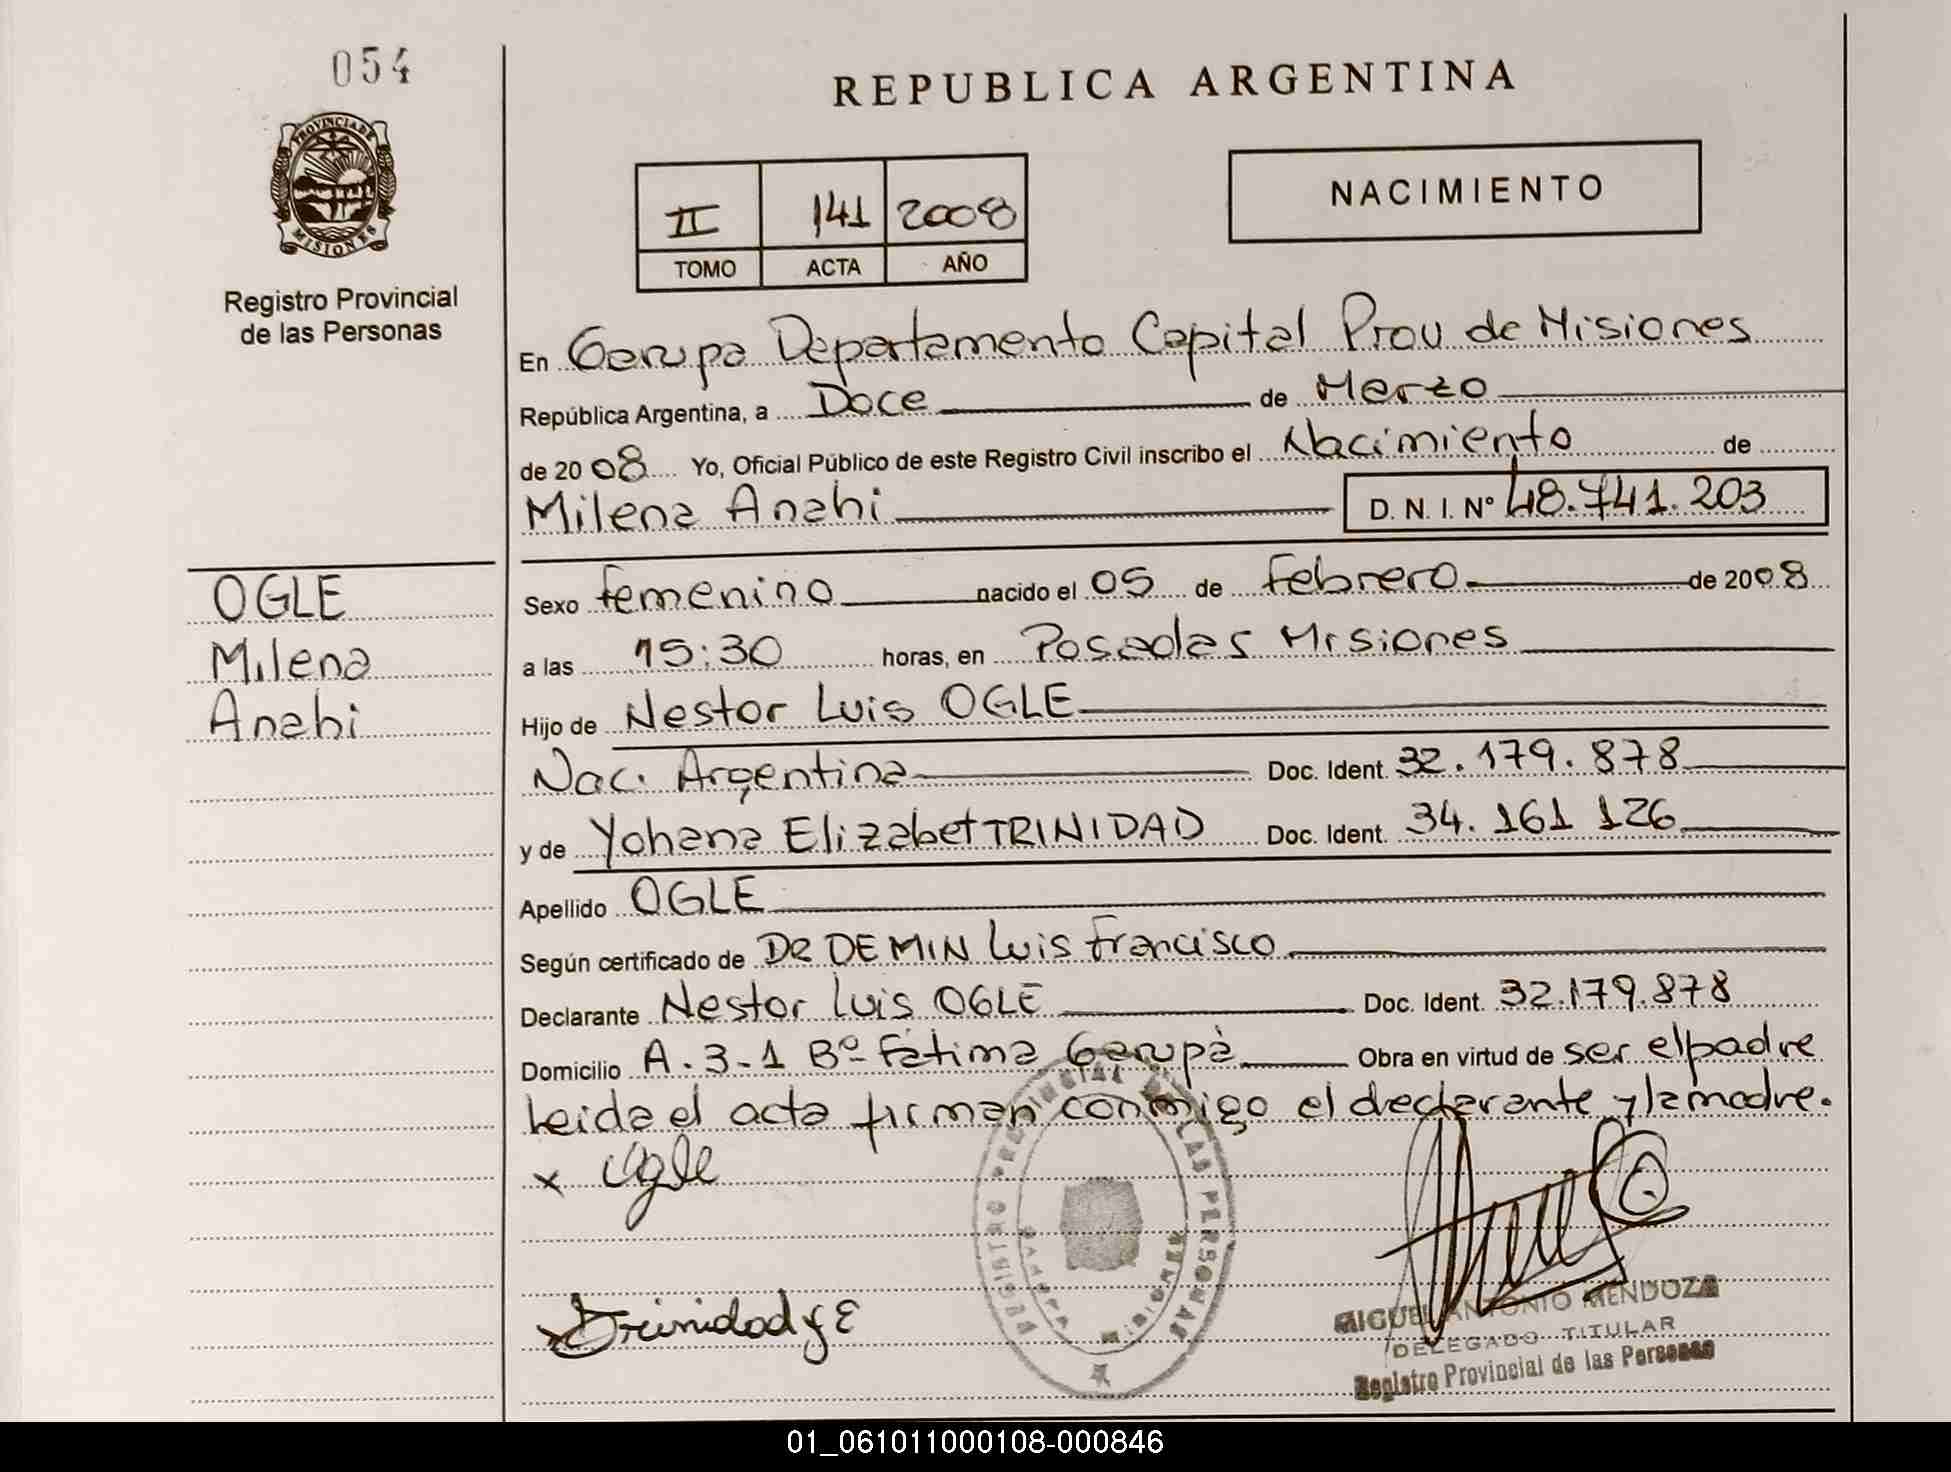 054
PROVINCIA DE
MISIONES
Registro Provincial
de las Personas
REPUBLICA ARGENTINA
II 141 2008
TOMO ACTA AÑO
NACIMIENTO
En Garupa Departamento Capital Prov de Misiones
República Argentina, a Doce de Marzo
de 2008 Yo, Oficial Público de este Registro Civil inscribo el Nacimiento de
Milena Anahi D. N. I. Nº 48.741.203
OGLE
Milena
Anahi
Sexo femenino nacido el 05 de febrero de 2008
a las 15:30 horas, en Posadas Misiones
Hijo de Nestor Luis OGLE
Nac. Argentina Doc. Ident. 32.179.878
y de Yohana Elizabet TRINIDAD Doc. Ident. 34.161 126
Apellido OGLE
Según certificado de DR DEMIN Luis Francisco
Declarante Nestor Luis OGLE Doc. Ident. 32.179.878
Domicilio A.3-1 Bº Fátima Garupà Obra en virtud de ser el padre
Leida el acta firman conmigo el declarante y la madre.
x Ogle
REGISTRO PROVINCIAL DE LAS PERSONAS
GARUPA MISIONES
x Trinidad Y E
MIGUEL ANTONIO MENDOZA
DELEGADO TITULAR
Registro Provincial de las Personas
01_061011000108-000846